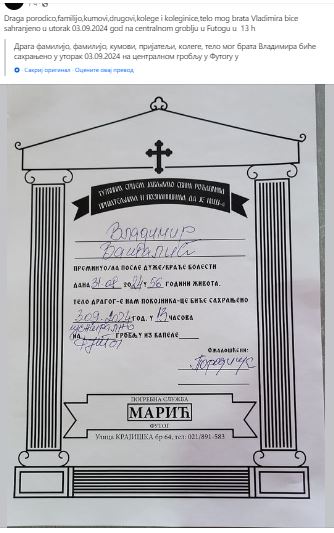 Draga porodico,familijo,kumovi,drugovi,kolege i koleginice,telo mog brata Vladimira bice
sahranjeno u utorak 03.09.2024 god na centralnom groblju u Futogu u 13 h
Драга фамилијо, фамилијо, кумови, пријатељи, колеге, тело мог брата Владимира биће
сахрањено у уторак 03.09.2024 на централном гробљу у Футогу у
Сакриј оригинал · Оцените овај превод
ТУЖНИМ СРЦЕМ ЈАВЉАМО СВИМ РОЂАЦИМА
ПРИЈАТЕЉИМА И ПОЗНАНИЦИМА ДА ЈЕ НАШ-А
Владимир
ПРЕМИНУО/ЛА ПОСЛЕ ДУЖЕ/КРАЋЕ БОЛЕСТИ
ДАНА 31.08 2024 у 56 ГОДИНИ ЖИВОТА.
ТЕЛО ДРАГОГ-Е НАМ ПОКОЈНИКА-ЦЕ БИЋЕ САХРАЊЕНО
3.09.2024 ГОД. У 13 ЧАСОВА
централно
НА ГРОБЉУ ИЗ КАПЕЛЕ
Футог
Ожалошћени:
Породица
ПОГРЕБНА СЛУЖБА
МАРИЋ
ФУТОГ
Улица КРАЈИШКА бр 64, тел: 021/891-583